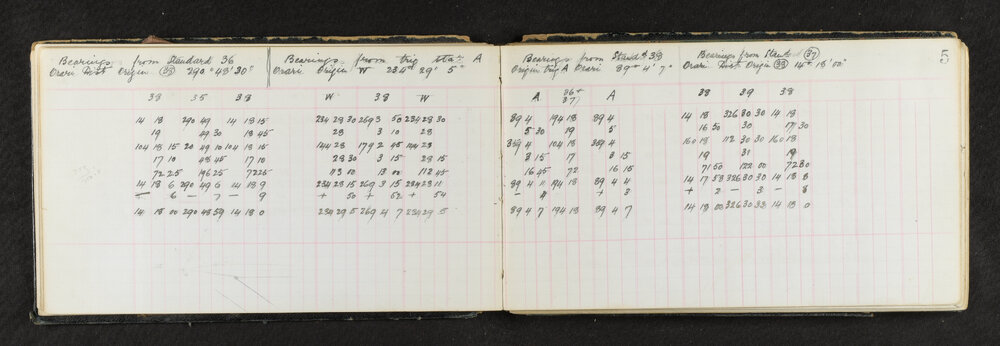 5
Bearings from Standard 36
Orari Dist Origin 290° 48' 30"
38 35 38
14 18 290 49 14 18 15
19 49 30 18 45
104 18 15 20 49 10 104 18 15
17 10 48 45 17 10
72 25 46 25 72 25
14 18 6 290 49 6 14 18 9
- 6 - 7 - 9
14 18 00 290 48 59 14 18 0
Bearings from trig stat. A
Orari Origin W 234° 29' 5"
W 38 W
234 28 30 269 3 50 234 28 30
28 3 10 28
144 28 179 2 45 144 28
28 30 3 15 28 15
113 00 13 00 112 45
234 28 15 269 3 15 234 28 11
+ 50 + 52 + 54
234 29 5 269 4 7 234 29 5
Bearings from Stand 38
Origin trig A Orari 89° 4' 7"
A 36+37 A
89 4 194 18 89 4
5 30 19 5
359 4 104 18 359 4
8 15 17 8 15
16 45 72 16 15
89 4 11 194 18 89 4 4
- 4 + 3
89 4 7 194 18 89 4 7
Bearings from Stand 37
Orari Dist Origin 38 14° 18' 00"
38 39 38
14 18 326 30 30 14 18
16 50 30 17 30
160 18 112 30 30 160 18
19 31 19
71 50 122 00 72 30
14 17 58 326 30 30 14 18 8
+ 2 - 3 - 8
14 18 00 326 30 33 14 18 0